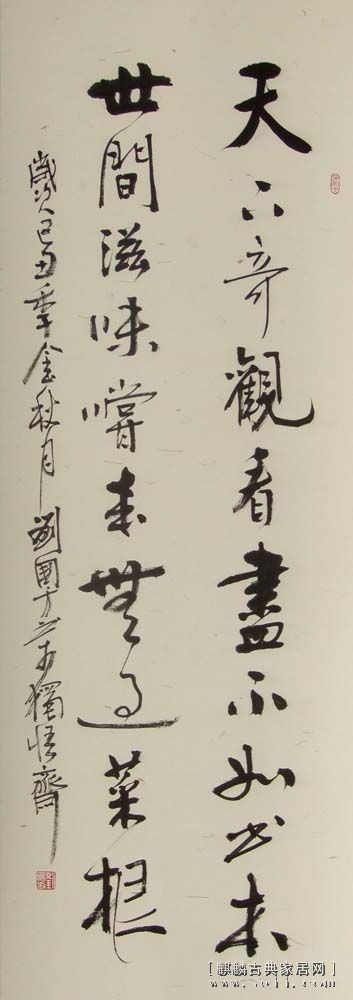 天下奇觀看盡不如书本
世間滋味嚐来無过菜根
歲次己丑年金秋月劉國於獨悟齋
[麒麟古典家居网]